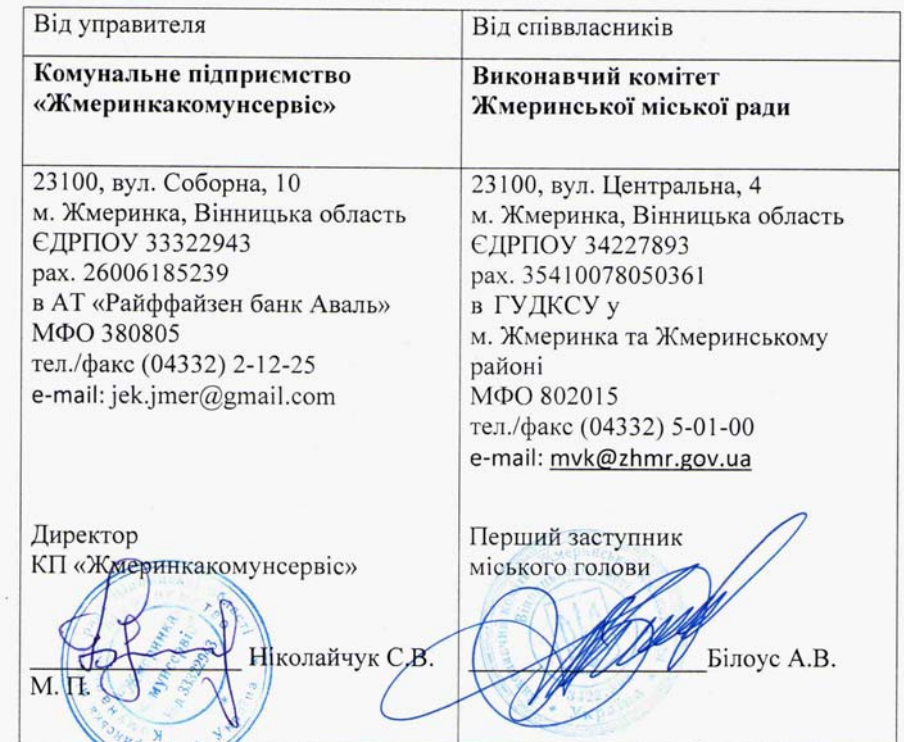 Від управителя
Від співвласників
Комунальне підприємство
«Жмеринкакомунсервіс»
Виконавчий комітет
Жмеринської міської ради
23100, вул. Соборна, 10
м. Жмеринка, Вінницька область
ЄДРПОУ 33322943
рах. 26006185239
в АТ «Райффайзен банк Аваль»
МФО 380805
тел./факс (04332) 2-12-25
e-mail: jek.jmer@gmail.com
23100, вул. Центральна, 4
м. Жмеринка, Вінницька область
ЄДРПОУ 34227893
рах. 35410078050361
в ГУДКСУ у
м. Жмеринка та Жмеринському
районі
МФО 802015
тел./факс (04332) 5-01-00
e-mail: mvk@zhmr.gov.ua
Директор
КП «Жмеринкакомунсервіс»
Ніколайчук С.В.
М. П.
Перший заступник
міського голови
Білоус А.В.
Україна